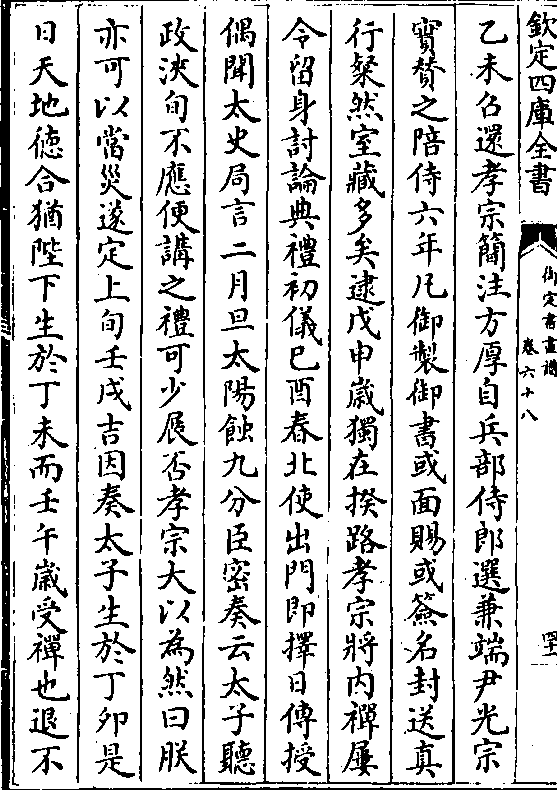 欽定四庫全書
御定書畫譜
卷六十八
乙未召還孝宗簡注方厚自兵部侍郎選兼端尹光宗
實贊之陪侍六年凡御製御書或面賜或簽名封送真
行粲然室藏多矣逮戊申歲獨在揆路孝宗將内禪屢
令留身討論典禮初儀已酉春北使出門即擇日傳授
偶聞太史局言二月旦太陽蝕九分臣密奏云太子聽
政浹旬不應便講之禮可少展否孝宗大以為然曰朕
亦可以當災遂定上旬壬戌吉因奏太子生於丁卯是
日天地德合猶陛下生於丁未而壬午歲受禪也退不